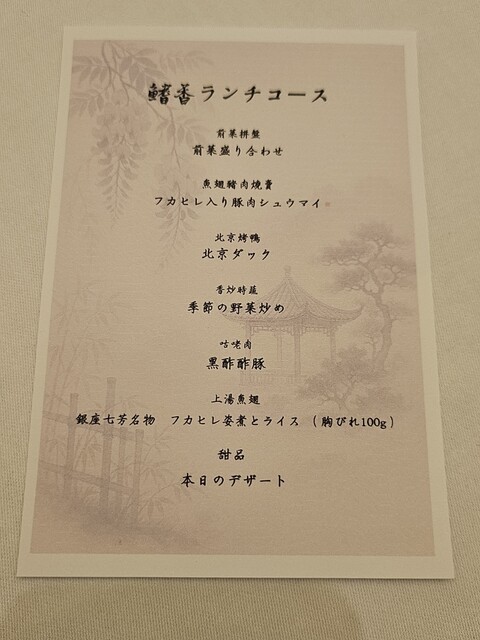 鰭香ランチコース
前菜拼盤
前菜盛り合わせ
魚翅豬肉燒賣
フカヒレ入り豚肉シュウマイ
北京烤鴨
北京ダック
香炒時蔬
季節の野菜炒め
咕咾肉
黒酢酢豚
上湯魚翅
銀座七芳名物 フカヒレ姿煮とライス (胸びれ100g)
甜品
本日のデザート